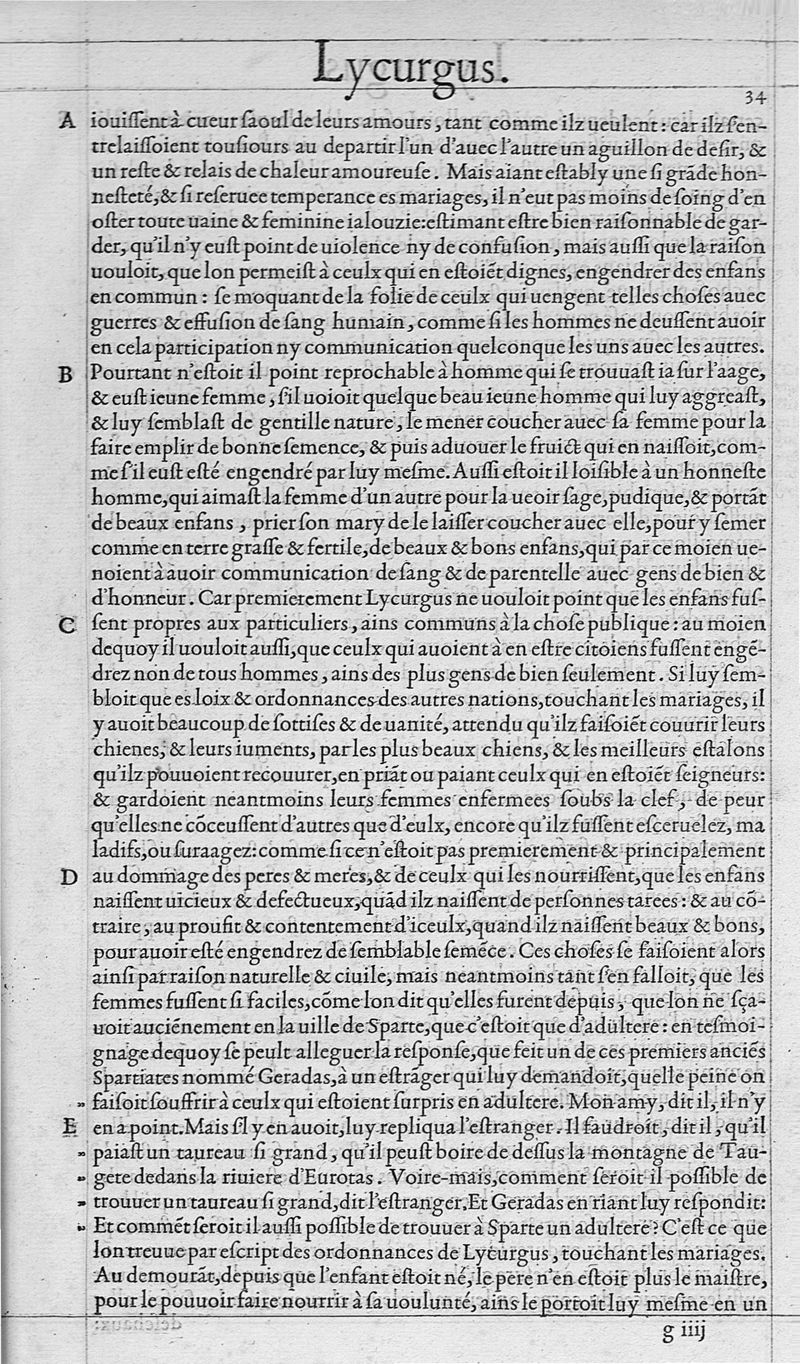 Lycurgus.
34
A iouiſſent à cueur ſaoul de leurs amours, tant comme ilz ueulent: car ilz ſ'en-
trelaiſſoient touſiours au departir l'un d'auec l'autre un aguillon de deſir, &
un reſte & relais de chaleur amoureuſe. Mais aiant eſtably une ſi grāde hon-
neſteté, & ſi reſeruee temperance es mariages, il n'eut pas moins de ſoing d'en
oſter toute uaine & feminine ialouzie: eſtimant eſtre bien raiſonnable de gar-
der, qu'il n'y euſt point de uiolence ny de confuſion, mais auſſi que la raiſon
uouloit, que lon permeiſt à ceulx qui en eſtoiēt dignes, engendrer des enfans
en commun: ſe moquant de la folie de ceulx qui uengent telles choſes auec
guerres & effuſion de ſang humain, comme ſi les hommes ne deuſſent auoir
en cela participation ny communication quelconque les uns auec les autres.
B Pourtant n'eſtoit il point reprochable à homme qui ſe trouuaſt ia ſur l'aage,
& euſt ieune femme, ſ'il uoioit quelque beau ieune homme qui luy aggreaſt,
& luy ſemblaſt de gentille nature, le mener coucher auec ſa femme pour la
faire emplir de bonne ſemence, & puis aduouer le fruict qui en naiſſoit, com-
me ſ'il euſt eſté engendré par luy meſme. Auſſi eſtoit il loiſible à un honneſte
homme, qui aimaſt la femme d'un autre pour la ueoir ſage, pudique, & portāt
de beaux enfans, prier ſon mary de le laiſſer coucher auec elle, pour y ſemer
comme en terre graſſe & fertile, de beaux & bons enfans, qui par ce moien ue-
noient à auoir communication de ſang & de parentelle auec gens de bien &
d'honneur. Car premierement Lycurgus ne uouloit point que les enfans fuſ-
C ſent propres aux particuliers, ains communs à la choſe publique: au moien
dequoy il uouloit auſſi, que ceulx qui auoient à en eſtre citoiens fuſſent engē-
drez non de tous hommes, ains des plus gens de bien ſeulement. Si luy ſem-
bloit que es loix & ordonnances des autres nations, touchant les mariages, il
y auoit beaucoup de ſottiſes & de uanité, attendu qu'ilz faiſoiēt couurir leurs
chienes, & leurs iuments, par les plus beaux chiens, & les meilleurs eſtalons
qu'ilz pouuoient recouurer, en priāt ou paiant ceulx qui en eſtoiēt ſeigneurs:
& gardoient neantmoins leurs femmes enfermees ſoubs la clef, de peur
qu'elles ne cōceuſſent d'autres que d'eulx, encore qu'ilz fuſſent eſceruelez, ma
ladifs, ou ſuraagez: comme ſi ce n'eſtoit pas premierement & principalement
D au dommage des peres & meres, & de ceulx qui les nourriſſent, que les enfans
naiſſent uicieux & defectueux, quād ilz naiſſent de perſonnes tarees: & au cō-
traire, au proufit & contentement d'iceulx, quand ilz naiſſent beaux & bons,
pour auoir eſté engendrez de ſemblable ſemēce. Ces choſes ſe faiſoient alors
ainſi par raiſon naturelle & ciuile, mais neantmoins tant ſ'en falloit, que les
femmes fuſſent ſi faciles, cōme lon dit qu'elles furent depuis, que lon ne ſça-
uoit anciēnement en la uille de Sparte, que c'eſtoit que d'adultere: en teſmoi-
gnage dequoy ſe peult alleguer la reſponſe, que feit un de ces premiers anciēs
Spartiates nommé Geradas, à un eſtrāger qui luy demandoit, quelle peine on
» faiſoit ſouffrir à ceulx qui eſtoient ſurpris en adultere. Mon amy, dit il, il n'y
E en a point. Mais ſ'il y en auoit, luy repliqua l'eſtranger. Il faudroit, dit il, qu'il
» paiaſt un taureau ſi grand, qu'il peuſt boire de deſſus la montagne de Tau-
» gete dedans la riuiere d'Eurotas. Voire-mais, comment ſeroit il poſſible de
» trouuer un taureau ſi grand, dit l'eſtranger. Et Geradas en riant luy reſpondit:
» Et commēt ſeroit il auſſi poſſible de trouuer à Sparte un adultere? C'eſt ce que
lon treuue par eſcript des ordonnances de Lycurgus, touchant les mariages.
Au demourāt, depuis que l'enfant eſtoit né, le pere n'en eſtoit plus le maiſtre,
pour le pouuoir faire nourrir à ſa uoulunté, ains le portoit luy meſme en un
g iiij